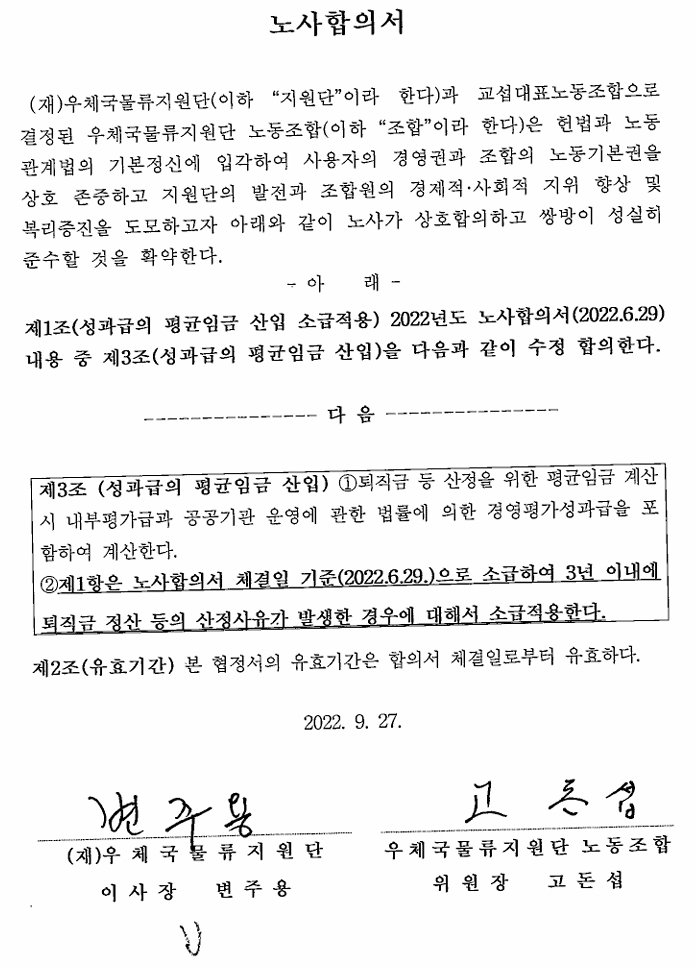 노사합의서
(재)우체국물류지원단(이하 “지원단”이라 한다)과 교섭대표노동조합으로
결정된 우체국물류지원단 노동조합(이하 “조합”이라 한다)은 헌법과 노동
관계법의 기본정신에 입각하여 사용자의 경영권과 조합의 노동기본권을
상호 존중하고 지원단의 발전과 조합원의 경제적·사회적 지위 향상 및
복리증진을 도모하고자 아래와 같이 노사가 상호합의하고 쌍방이 성실히
준수할 것을 확약한다.
- 아 래 -
제1조(성과급의 평균임금 산입 소급적용) 2022년도 노사합의서(2022.6.29)
내용 중 제3조(성과급의 평균임금 산입)을 다음과 같이 수정 합의한다.
---------------- 다 음 ----------------
제3조 (성과급의 평균임금 산입) ①퇴직금 등 산정을 위한 평균임금 계산
시 내부평가급과 공공기관 운영에 관한 법률에 의한 경영평가성과급을 포
함하여 계산한다.
②제1항은 노사합의서 체결일 기준(2022.6.29.)으로 소급하여 3년 이내에
퇴직금 정산 등의 산정사유가 발생한 경우에 대해서 소급적용한다.
제2조(유효기간) 본 협정서의 유효기간은 합의서 체결일로부터 유효하다.
2022. 9. 27.
변주용 고돈섭
(재)우체국물류지원단 우체국물류지원단 노동조합
이사장 변주용 위원장 고돈섭